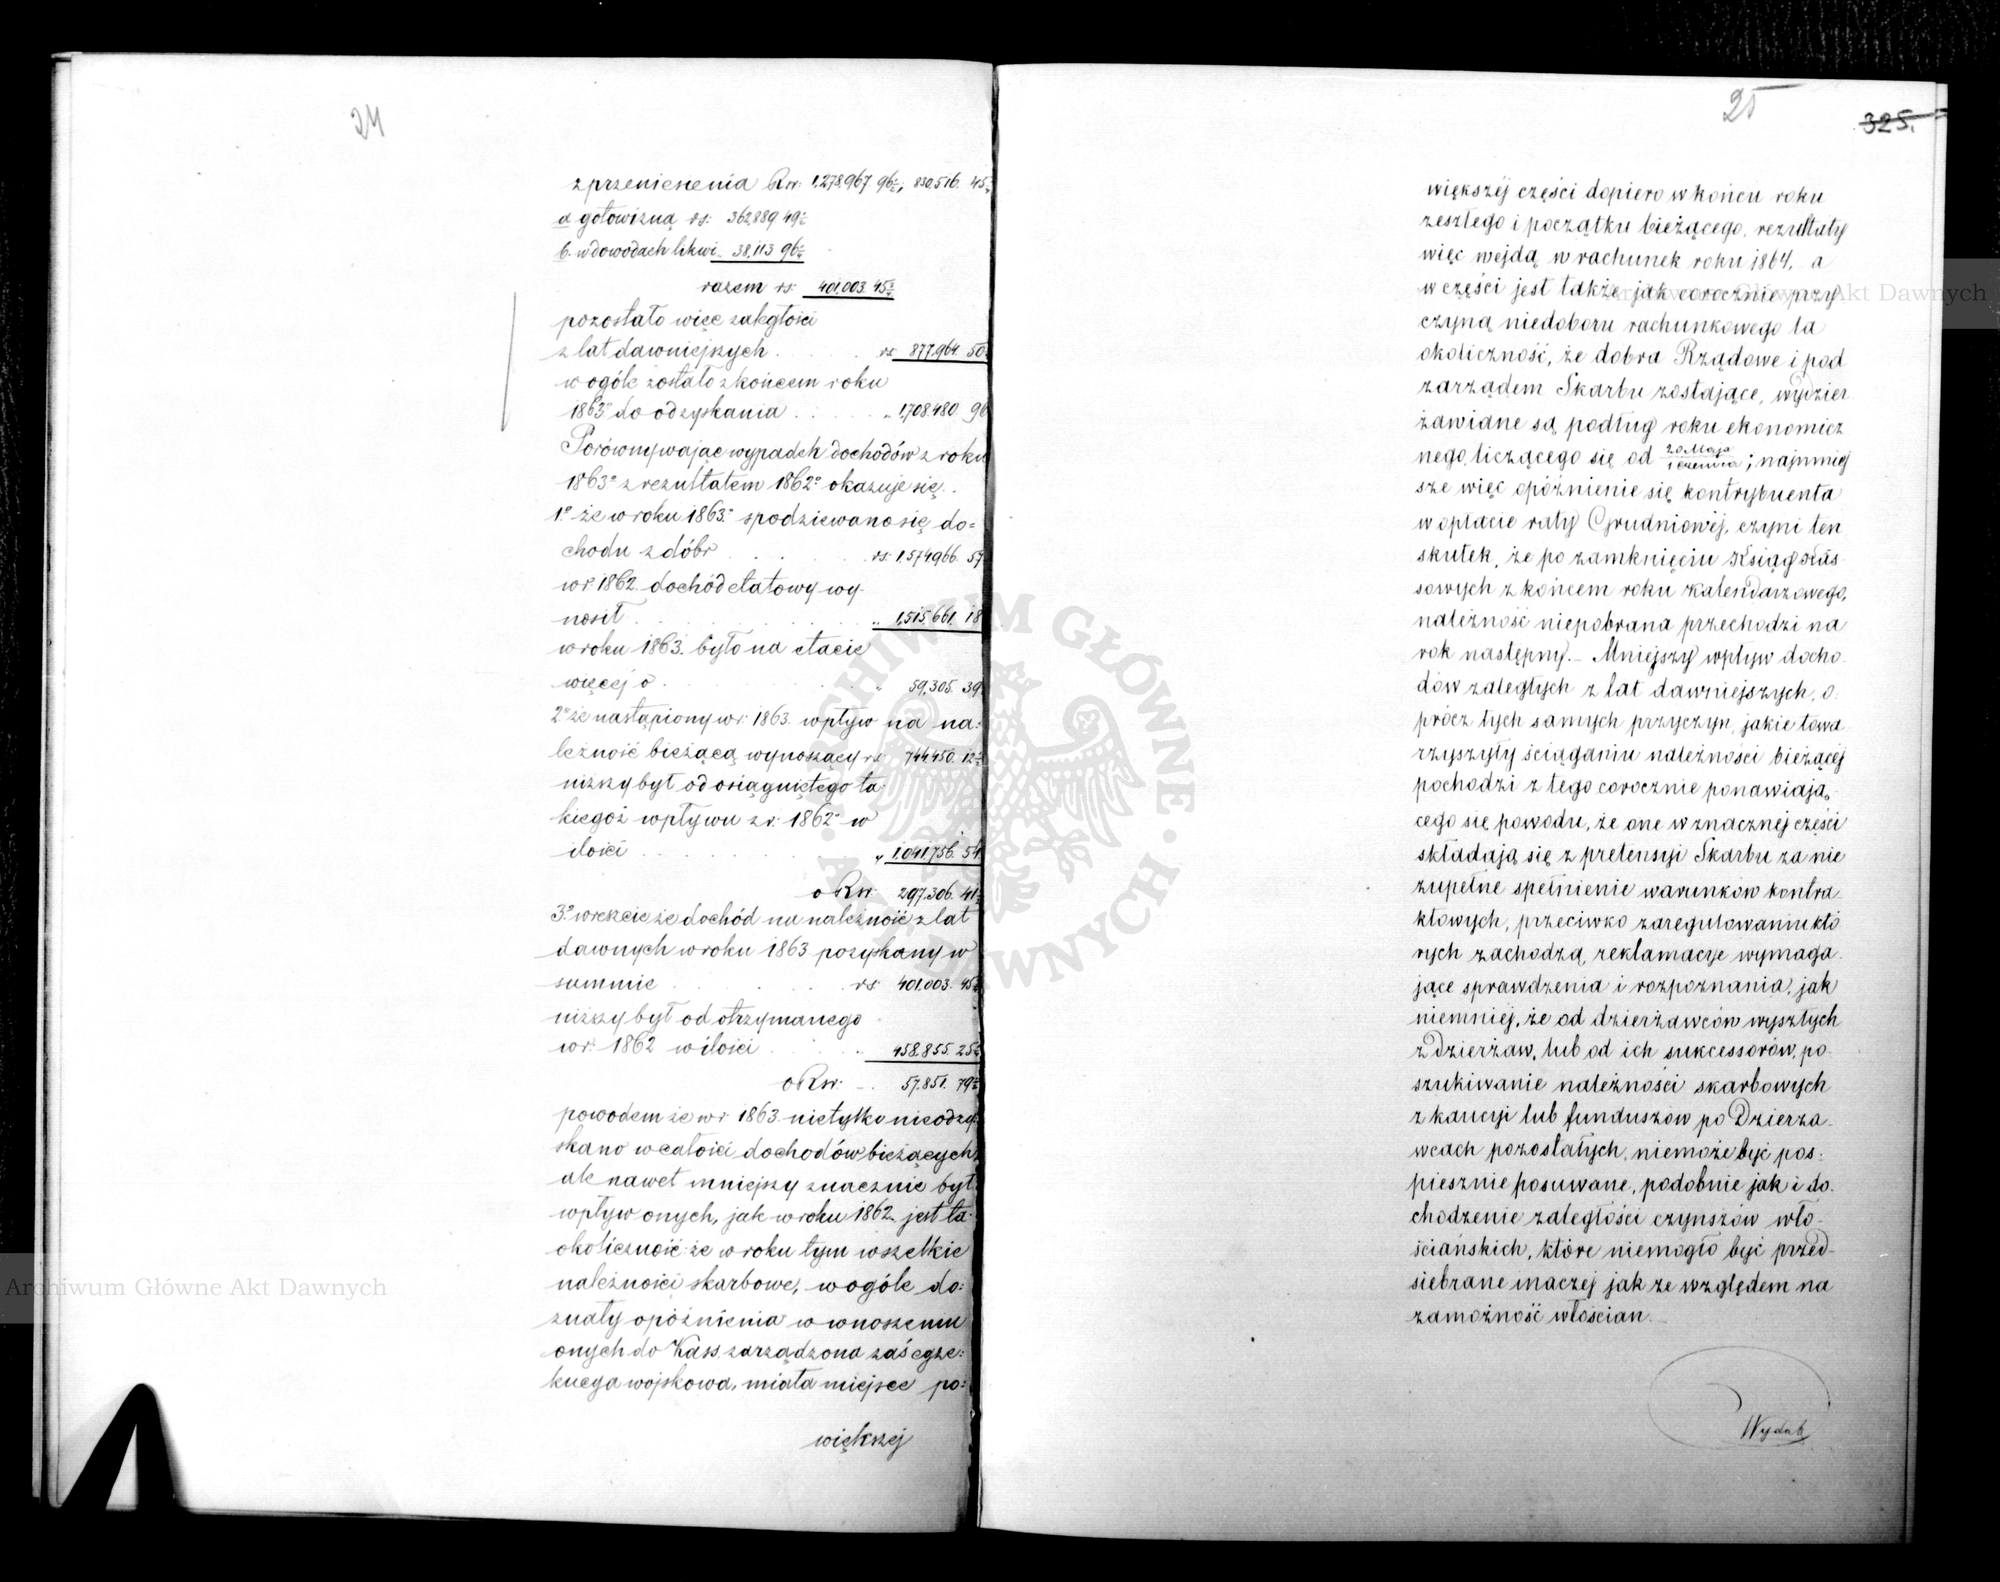 24
z przeniesienia Rsr: 1,278,967 96½, 830,516. 45
a gotowizną rs: 362,889 49½
b. w dowodach likwi „ 38,113 96
razem rs: 401,003. 45½
pozostało więc zaległości
z lat dawniejszych . . . rs 877,964. 50
w ogóle zostało z końcem roku
1863o do odzyskania . . . . „ 1,708,480. 96
Porównywając wypadek dochodów z roku
1863o z rezultatem 1862o okazuje się.
1o że w roku 1863o spodziewano się do=
chodu z dóbr . . . . rs. 1,574,966. 57
w r: 1862 dochód etatowy wy
nosił . . . . . . „ 1,515,661. 18
w roku 1863. było na etacie
więcej o . . . . . . „ 59,305. 39
2o że nastąpiony w r: 1863. wpływ na na=
leżność bieżącą wynoszący rs 744,450. 12½
niższy był od osiągniętego ta
kiegoż wpływu z r: 1862o w
ilości . . . . . . „ 1,041,756. 54
o Rsr: 297,306. 41½
3o wreszcie że dochód na należność z lat
dawnych w roku 1863 pozyskany w
summie . . . . . rs: 401,003. 45½
niższy był od otrzymanego
w r: 1862 w ilości . . . „ 458,855. 25
o Rsr: . . 57,851. 79½
powodem że w r: 1863. nietylko nieodzy
skano w całości dochodów bieżących
ale nawet mniejszy znacznie był
wpływ onych, jak w roku 1862. jest ta
okoliczność że w roku tym wszelkie
należności skarbowe, w ogóle do=
znały opóźnienia w wnoszeniu
onych do Kass zarządzona zaś egze=
kucya wojskowa, miała miejsce po=
większej
25
325.
większéj części dopiero w końcu roku
zeszłego i początku bieżącego, rezultaty
więc wejdą w rachunek roku 1864, a
w części jest także jak corocznie przy
czyną niedoboru rachunkowego ta
okoliczność, że dobra Rządowe i pod
zarządem Skarbu zostające, wydzier
żawiane są podług roku ekonomicz
nego, liczącego się od 20 Maja / 1 czerwca; najmniej
sze więc opóźnienie się kontrybuenta
w opłacie raty Grudniowéj, czyni ten
skutek, że po zamknięciu Ksiąg Kas
sowych z końcem roku Kalendarzowego,
należność niepobrana przechodzi na
rok następny. – Mniejszy wpływ docho
dów zaległych z lat dawniejszych, o
prócz tych samych przyczyn, jakie towa
rzyszyły ściąganiu należności bieżącéj
pochodzi z tego corocznie ponawiają,
cego się powodu, że one w znacznej części
składają się z pretensyi Skarbu za nie
zupełne spełnienie warunków kontra
ktowych, przeciwko zaregulowaniu któ
rych zachodzą, reklamacye wymaga
jące sprawdzenia i rozpoznania, jak
niemniej, że od dzierżawców wyszłych
z Dzierżaw, lub od ich sukcessorów, po
szukiwanie należności skarbowych
z kaucyi lub funduszów po Dzierża
wcach pozostałych, niemoże być pos
piesznie posuwane, podobnie jak i do
chodzenie zaległości czynszów wło
ściańskich, które niemogło być przed
siebrane inaczej jak ze względem na
zamożność włościan.